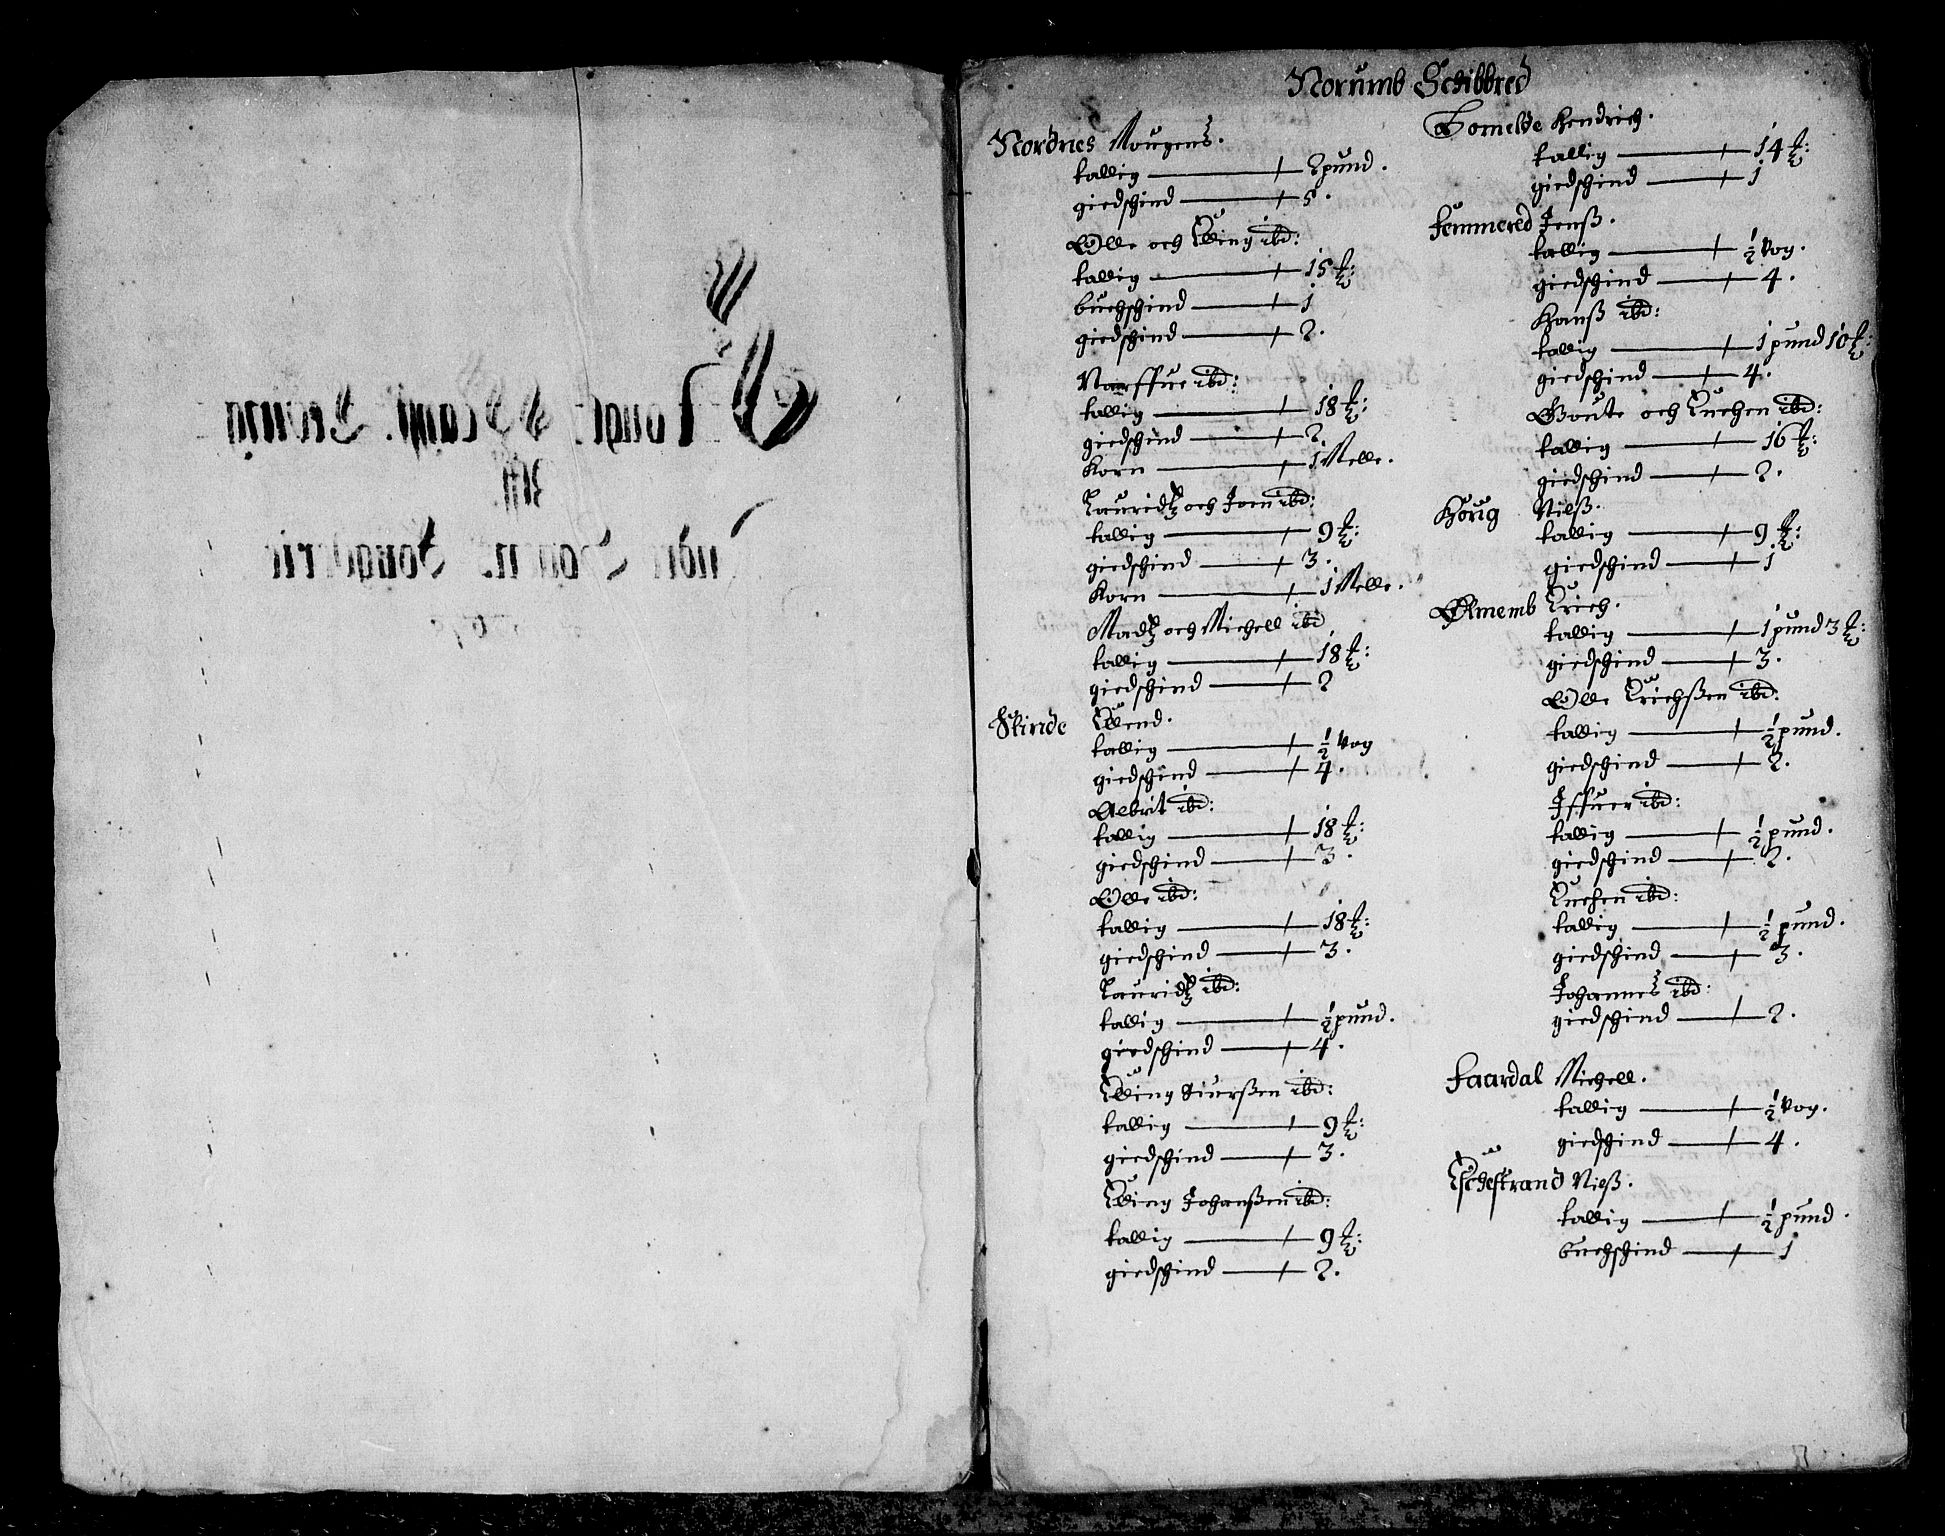 Norumb Schibbred
Nordnes Mougens.
tallig — 2 pund.
giedschind — 5.
Olle och Elling ibd:
tallig — 15 ℔:
buchschind — 1
giedschind — 2.
Narffue ibd:
tallig — 18 ℔:
giedschind — 2.
Korn — 1 Melle.
Lauridtz och Joen ibd:
tallig — 9 ℔:
giedschind — 3.
Korn — 1 Melle.
Madtz och Michell ibd
tallig — 18 ℔:
giedschind — 2
Skinde Ellend.
tallig — ½ Vog
giedschind — 4.
Albrit ibd:
tallig — 18 ℔:
giedschind — 3.
Olle ibd:
tallig — 18 ℔:
giedschind — 3.
Lauridtz ibd:
tallig — ½ pund.
giedschind — 4.
Elling Siurßen ibd:
tallig — 9 ℔:
giedschind — 3.
Elling Johanßen ibd:
tallig — 9 ℔:
giedschind — 2.
Tomelde Hendrich.
tallig — 14 ℔:
giedschind — 1
Femmered Jenß.
tallig — ½ Vog.
giedschind — 4.
Hanß ibd:
tallig — 1 pund 10 ℔:
giedschind — 4.
Goute och Euchen ibd:
tallig — 16 ℔:
giedschind — 2.
Houg Nielß.
tallig — 9 ℔:
giedschind — 1
Ølmemb Erich.
tallig — 1 pund 3 ℔:
giedschind — 3.
Olle Erichßen ibd:
tallig — ½ pund.
giedschind — 2.
Iffuer ibd:
tallig — ½ pund.
giedschind — 2.
Euchen ibd:
tallig — ½ pund.
giedschind — 3.
Johannes ibd:
giedschind — 2.
Faardal Michell.
tallig — ½ Vog.
giedschind — 4.
Eschestrand Nielß.
tallig — ½ pund.
buchschind — 1